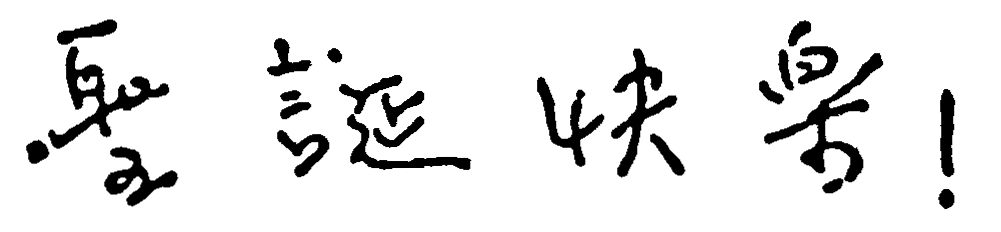 聖誕快樂!